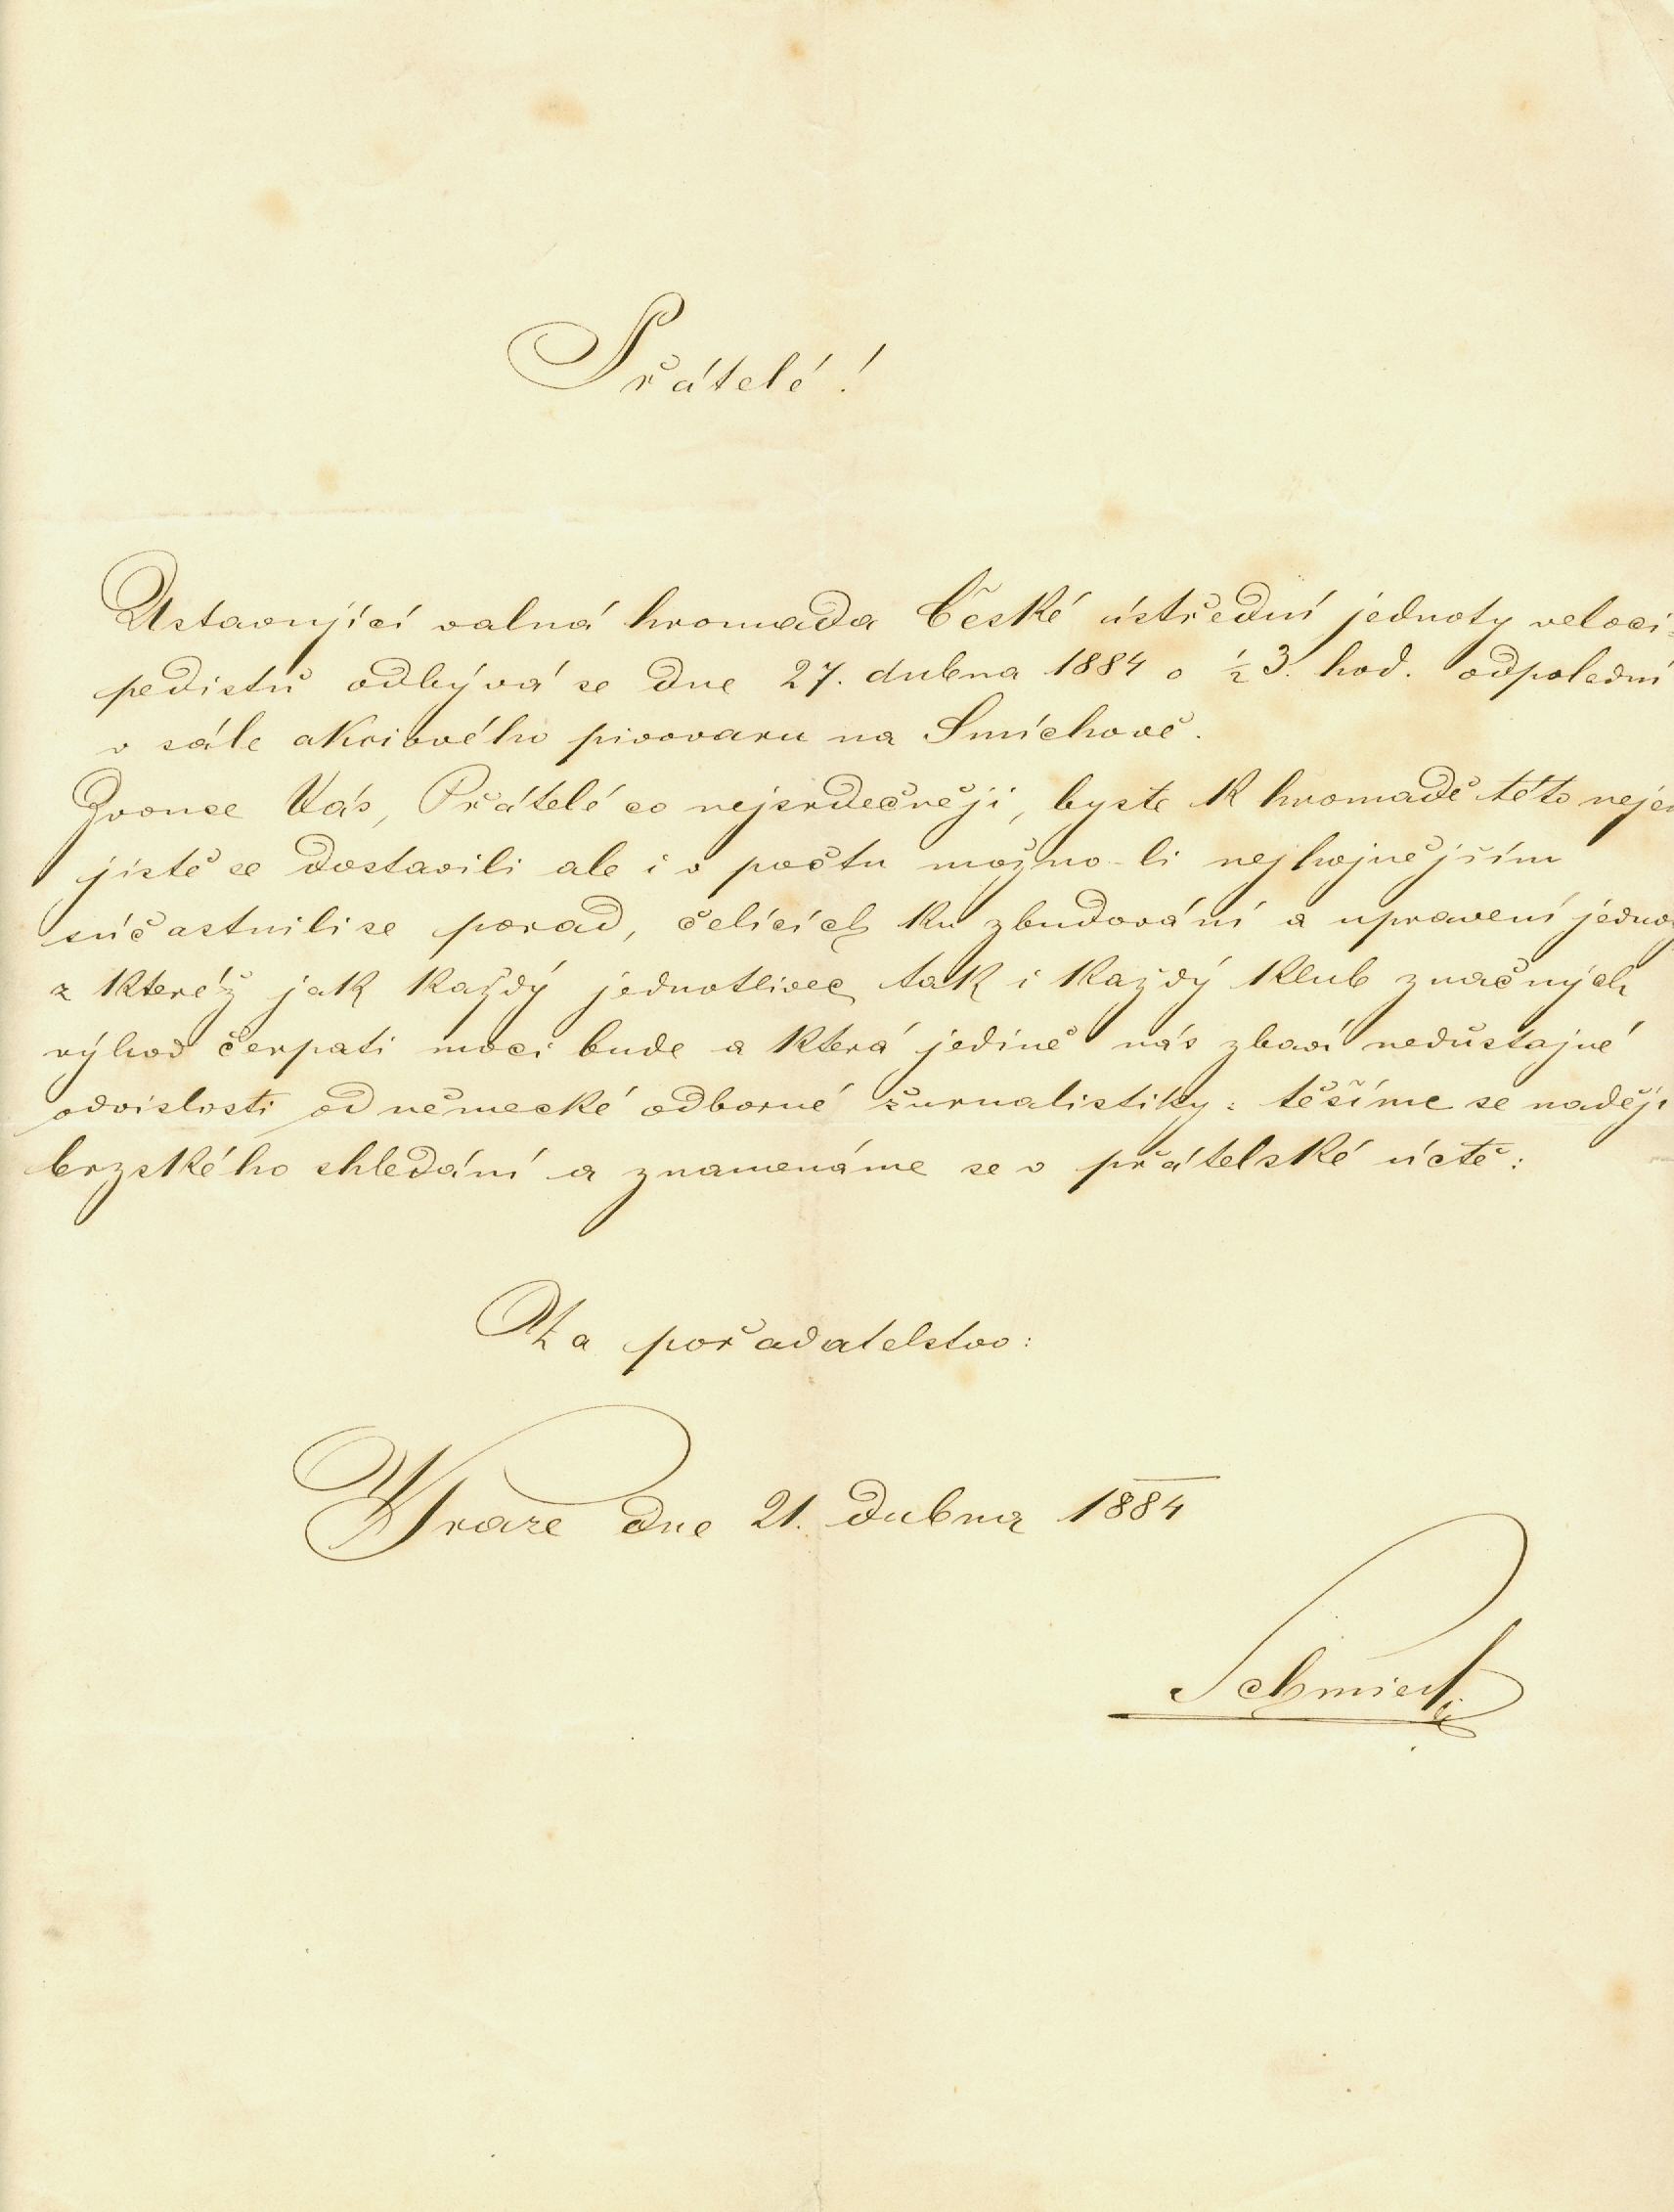 Přátelé!
Ustavující valná hromada České ústřední jednoty veloci=
pedistů odbývá se dne 27. dubna 1884 o ½3. hod. odpolední
v sále akciového pivovaru na Smíchově.
Zvouce Vás, Přátelé co nejsrdečněji, byste k hromadě této nejen
jistě se dostavili ale i v počtu možno-li nejhojnějším
súčastnili se porad, čelících ku zbudování a upravení
z kteréž jak každý jednotlivec tak i každý klub značných
výhod čerpati moci bude a která jedině nás zbaví nedůstajné
odvislosti od německé odborné žurnalistiky: těšíme se naději
brzského shledání a znamenáme se v přátelské úctě:
Za pořadatelstvo:
V Praze dne 21. dubna 1884